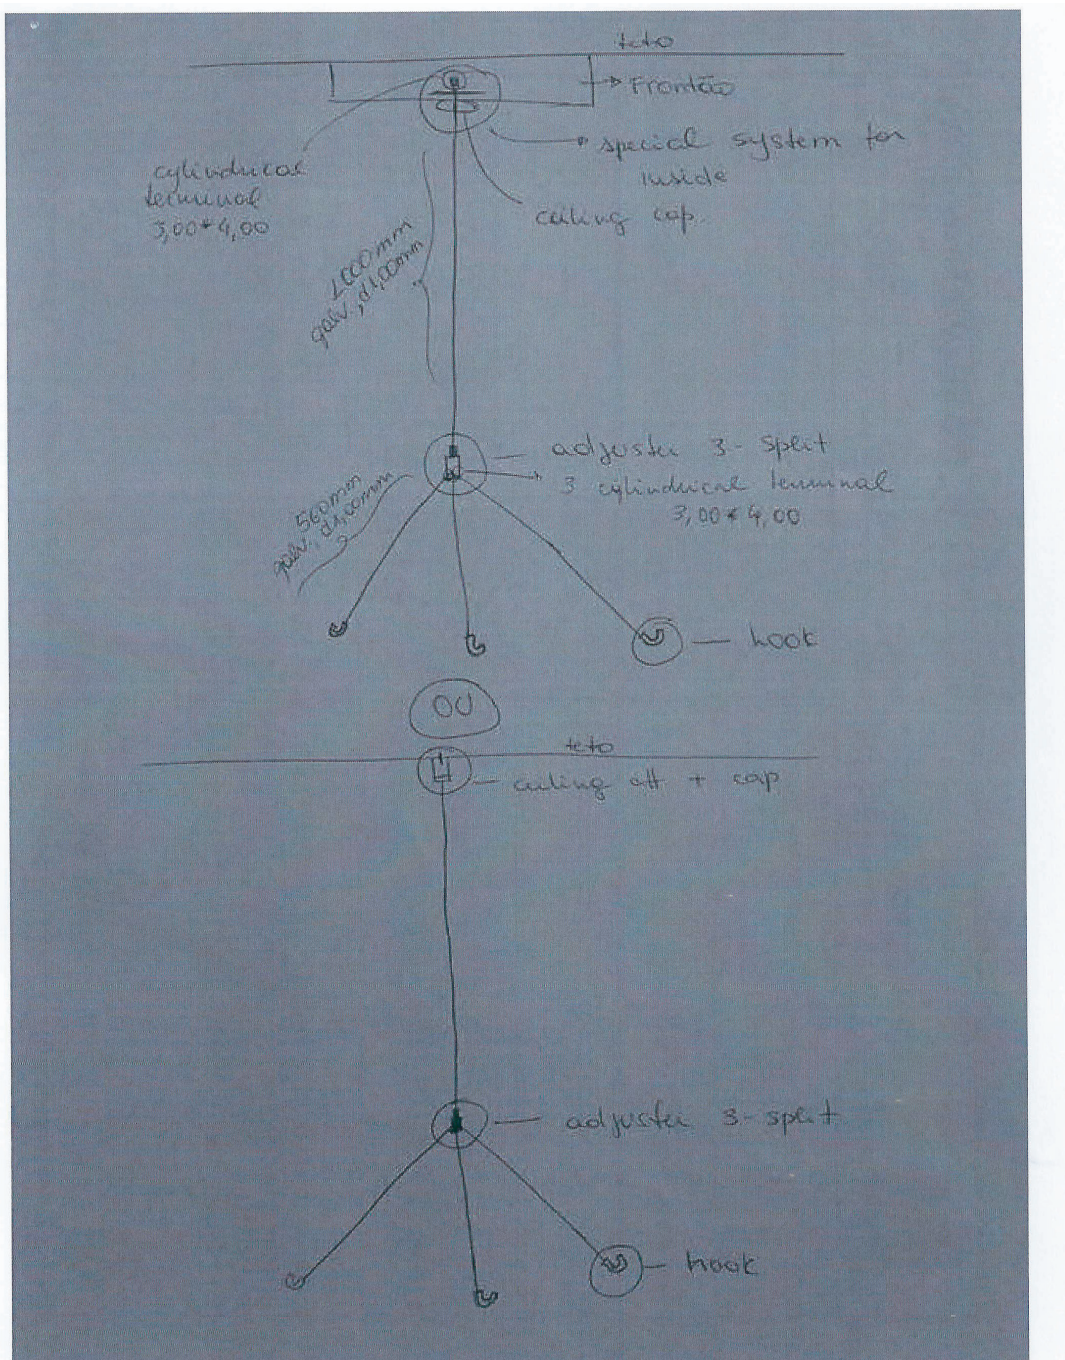 teto
Frontão
special system for
inside
ceiling cap
cylindrical
terminal
3,00*4,00
galv., d1,00mm
adjuster 3-split
3 cylindrical terminal
3,00*4,00
560mm
galv., d1,00mm
hook
OU
teto
ceiling att + cap
adjuster 3-split
hook